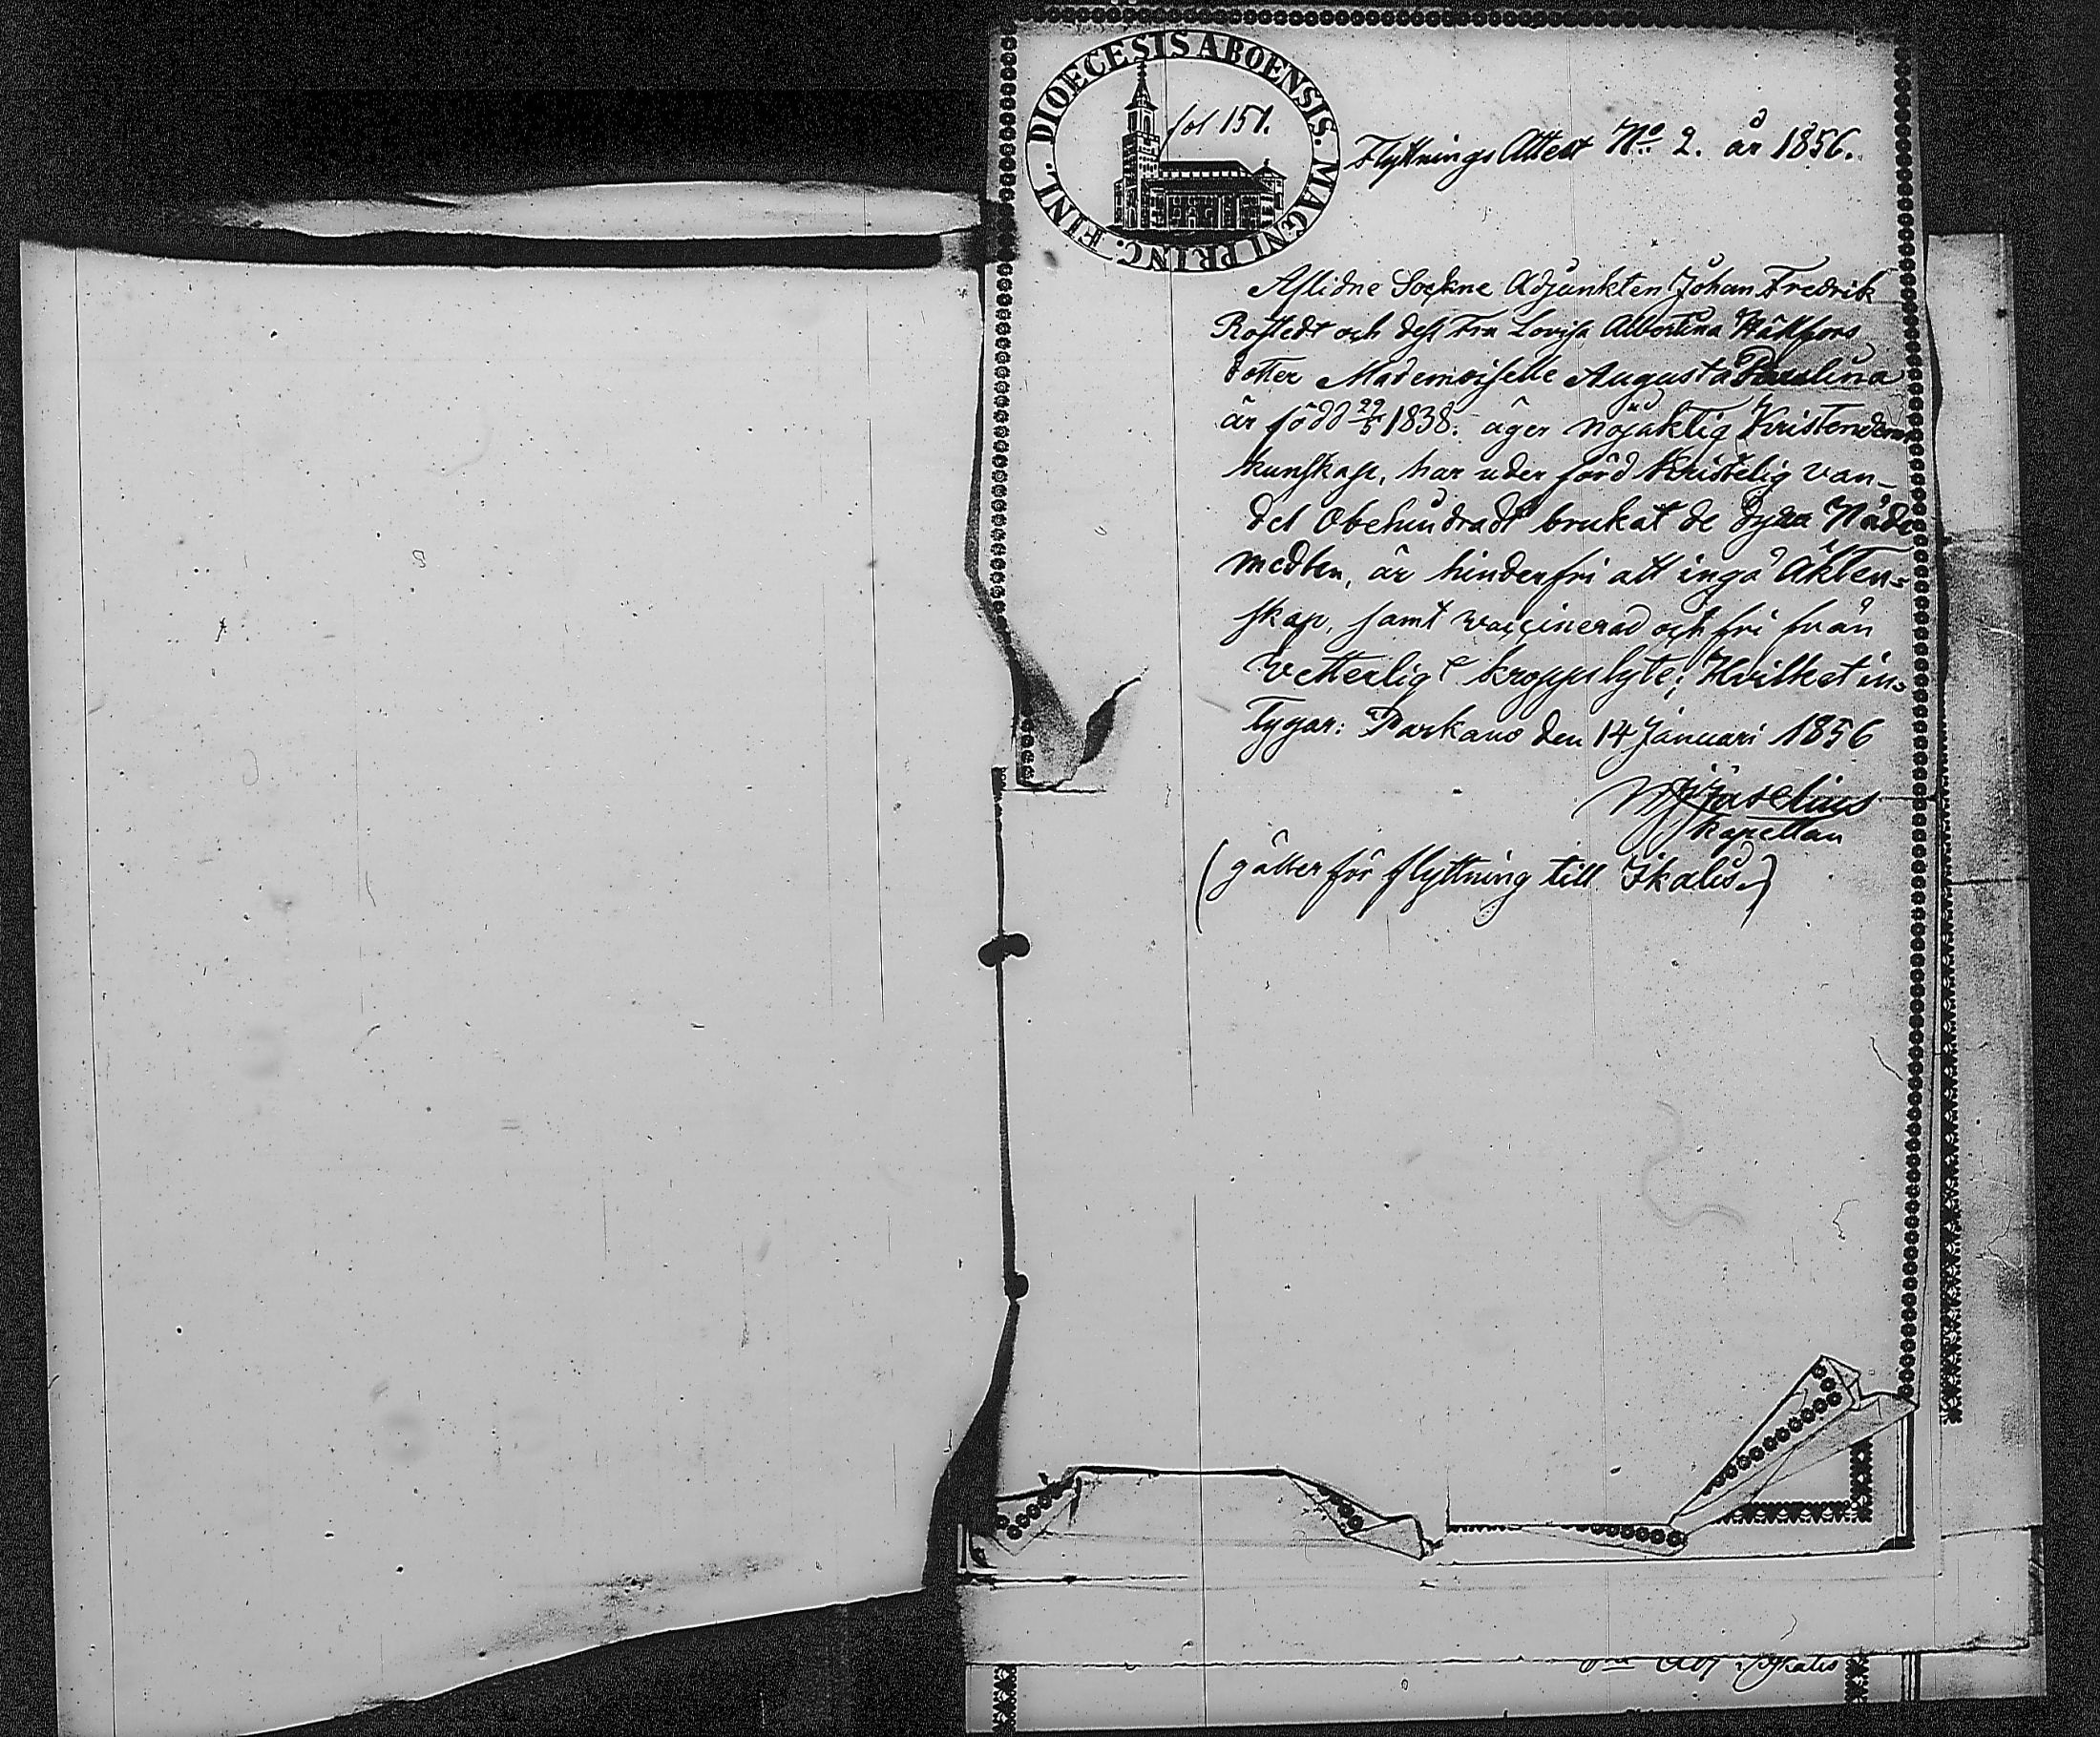 DIOECESIS ABOENSIS. MAGNI PRINC. FINL.
fol 151.
Flyttnings Attest No 2. år 1856.
Aflidne Sockne Adjunkten Johan Fredrik
Rostedt och dess Fru Lovisa Albertina Hällfors
dotter Mademoiselle Augusta Paulina
är född 29/5 1838. äger nöjaktig Kristendoms
kunskap, har under förd Kristelig van-
del Obehindradt brukat de dyra Nåde
medlen, är hinderfri att ingå Äkten-
skap, samt vaccinerad och fri från
vetterligt kroppslyte; Hvilket in-
tygar: Parkano den 14 Januari 1856
Kapellan
(gäller för flyttning till Ikalis.)
Ikalis